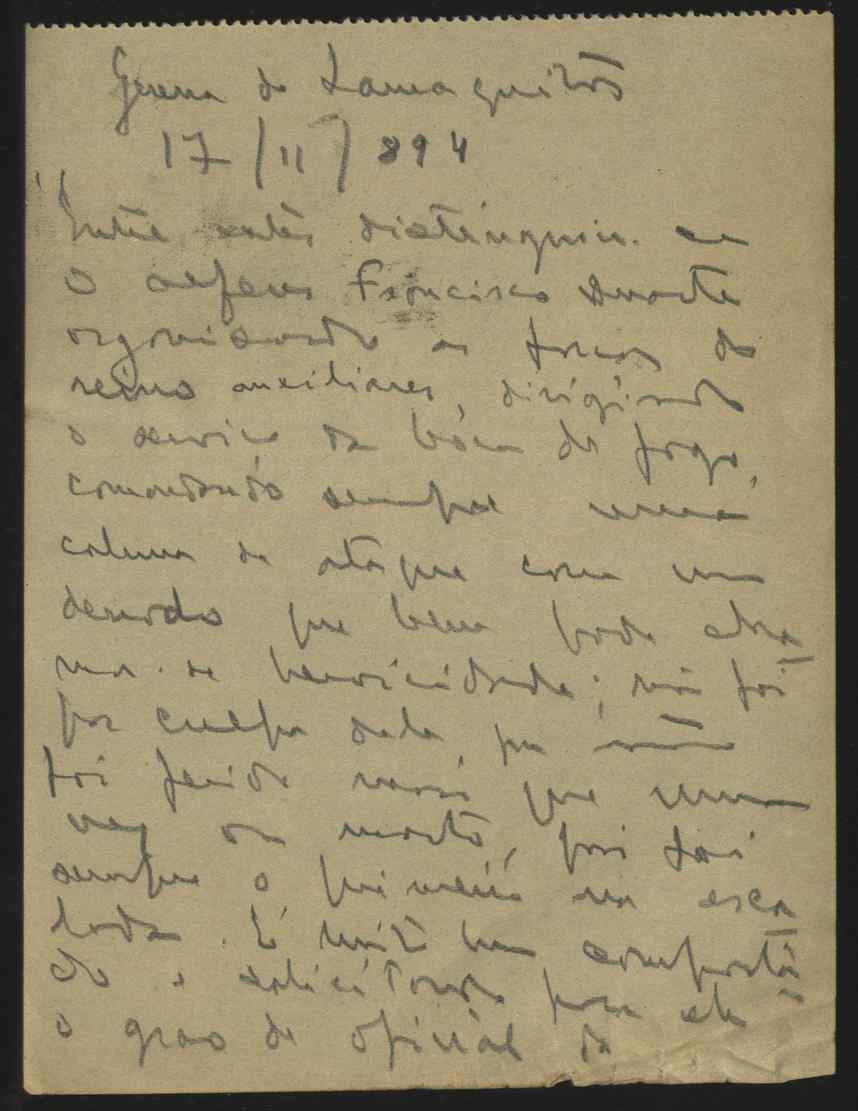 Guerra de Lamaquitos
17/11/894
"Entre estes distinguiu-se
o alferes Francisco Duarte
organisando as forças do
reino auxiliares, dirigindo
o serviço da bôca de fogo,
comandando sempre uma
coluna de ataque com um
denodo que bem pode cha-
mar-se heroicidade; não foi
por culpa dele, que não
foi ferido mais que uma
vez ou morto, pois foi
sempre o primeiro na esca-
lada. É muito bem comporta-
do e solicitando para ele
o grao de oficial da